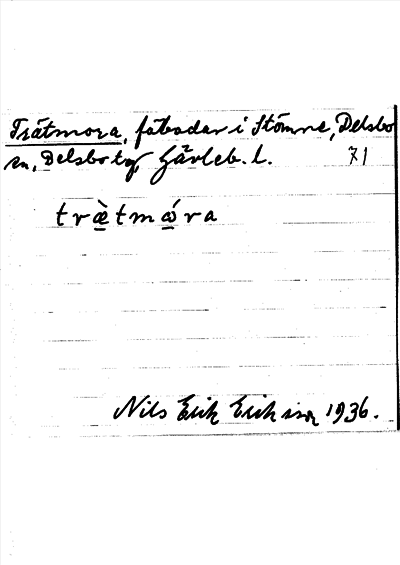 Trätmora, fäbodar i Stömne, Delsbo
sn, Delsbo tg, Gävleb. l. 71
træ̀tmǻra
Nils Erik Eriksson 1936.